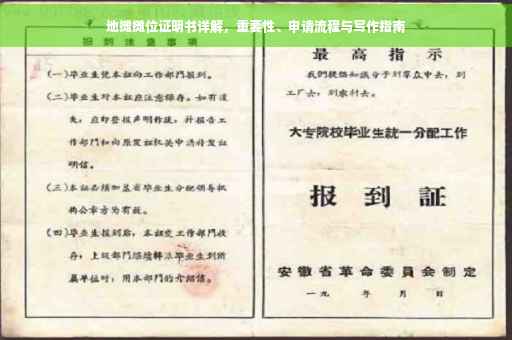 地摊摊位证明书详解，重要性、申请流程与写作指南
报到注意事项
(一)毕业生凭本证向工作部门报到。
(二)毕业生对本证应注意保存。如有遗
失，应即登报声明作废，并报告工
作部门和向原发证机关申请补发证
明信。
(三)本证必须加盖省毕业生分配领导机
构公章方为有效。
(四)毕业生报到后，本证交工作部门收
存；上级部门继续转派毕业生到所
属单位时，用本部门的介绍信。
最高指示
我们提倡知识分子到群众中去，到
工厂去，到农村去。
大专院校毕业生统一分配工作
报到证
安徽省革命委员会制定
一九 年 月 日